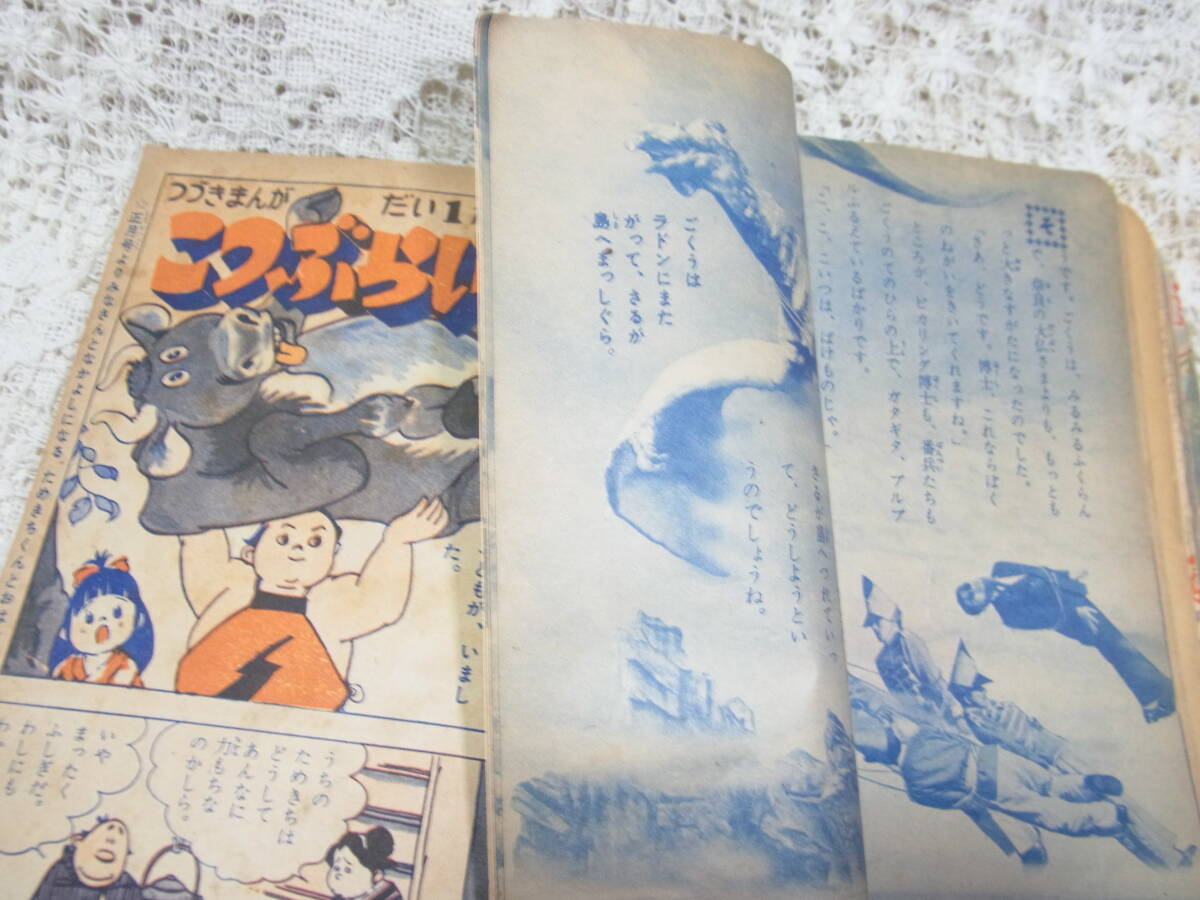 つづきまんが
だい1
こつぶらい
た。
いまし
いや
まったく
ふしぎだ。
わしにも
うちの
ためきちは
どうして
あんなに
力もちな
のかしら。
ごくうは
ラドンにまた
がって、さるが
島へまっしぐら。
さるが島へつれていっ
て、どうしようとい
うのでしょうね。
そ
です。ごくうは、みるみるふくらん
で、奈良の大仏さまよりも、もっとも
っと大きなすがたになったのでした。
「さあ、どうです。博士、これならぼく
のねがいをきいてくれますね。」
ところが、ピカリング博士も、番兵たちも
ごくうのてのひらの上で、ガタガタ、ブルブ
ルふるえているばかりです。
「こ、こいつは、ばけものじゃ。